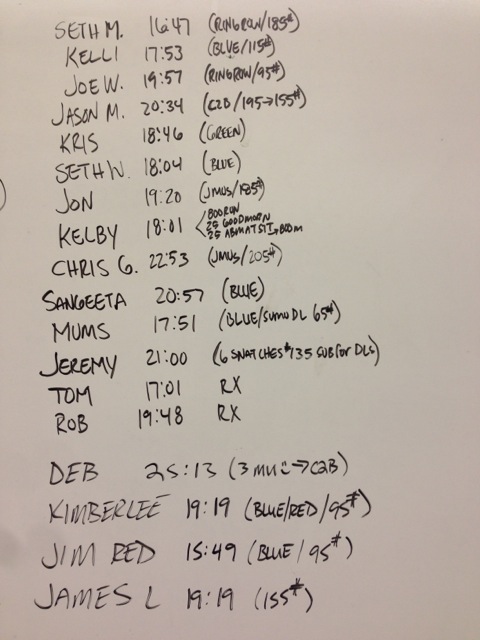 SETH M. 16:47 (RINGROW/185#)
KELLI 17:53 (BLUE/115#)
JOE W. 19:57 (RINGROW/95#)
JASON M. 20:34 (C2B/195→155#)
KRIS 18:46 (GREEN)
SETH W. 18:04 (BLUE)
JON 19:20 (JMUS/185#)
KELBY 18:01 < 800RUN
25 GOODMORN
25 ABMAT SIT
CHRIS G. 22:53 (JMUS/205#)
SANGEETA 20:57 (BLUE)
MUMS 17:51 (BLUE/SUMO DL 65#)
JEREMY 21:00 (6 SNATCHES #135 SUB for DLS)
TOM 17:01 RX
ROB 19:48 RX
DEB 25:13 (3 MU → C2B)
KIMBERLEE 19:19 (BLUE/RED/95#)
JIM RED 15:49 (BLUE/95#)
JAMES L 19:19 (155#)